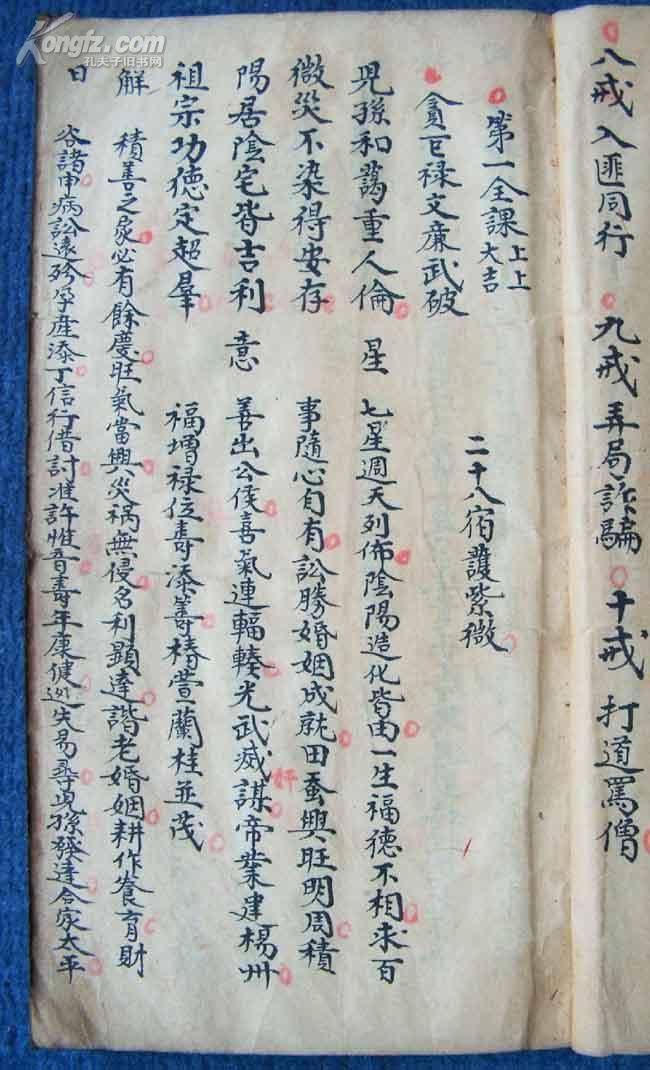 八戒入匪同行　九戒弄局詐騙　十戒打道罵僧
第一全課 上上大吉
貪巨禄文廉武破　二十八宿護紫微
兒孫和藹重人倫　星　七星週天列佈陰陽造化皆由一生福德不相求百
微災不染得安存　事隨心自有訟勝婚姻成就田蚕興旺明周積
陽居陰宅皆吉利　意　善出公侯喜氣連輻輳光武滅奸謀帝業建楊州
祖宗功德定超羣　福增禄位壽添籌椿萱蘭桂並茂
解　積善之家必有餘慶旺氣當興災禍無侵名利顯達諧老婚姻耕作養育財
曰　谷諸申病訟遠殄孕產添丁信行借討准許惟吾壽年康健逃失易尋兒孫發達合家太平
Kongfz.com
孔夫子旧书网